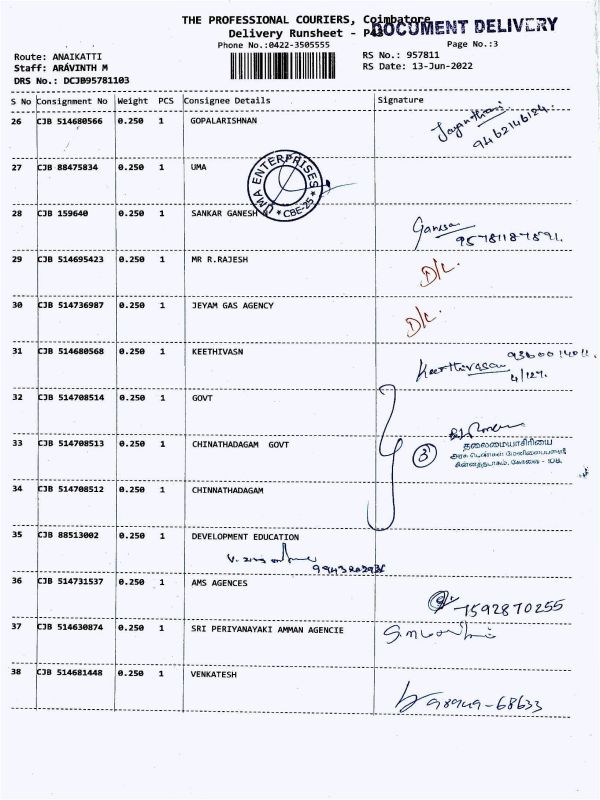 THE PROFESSIONAL COURIERS, Coimbatore
DOCUMENT DELIVERY
Delivery Runsheet - P43
Phone No.:0422-3505555
Page No.:3
Route: ANAIKATTI
RS No.: 957811
Staff: ARAVINTH M
RS Date: 13-Jun-2022
DRS No.: DCJB95781103
S No Consignment No Weight PCS Consignee Details Signature
26 CJB 514680566 0.250 1 GOPALARISHNAN
9462146124
27 CJB 88475834 0.250 1 UMA
UMA ENTERPRISES
* CBE-25 *
28 CJB 159640 0.250 1 SANKAR GANESH
Ganesa
29 CJB 514695423 0.250 1 MR R.RAJESH
D/c.
30 CJB 514736987 0.250 1 JEYAM GAS AGENCY
D/c.
31 CJB 514680568 0.250 1 KEETHIVASN
Keerthivasan
4/127.
32 CJB 514708514 0.250 1 GOVT
33 CJB 514708513 0.250 1 CHINATHADAGAM GOVT
3
தலைமையாசிரியை
அரசு பெண்கள் மேனிலைப்பள்ளி
சின்னத்தடாகம், கோவை - 108
34 CJB 514708512 0.250 1 CHINNATHADAGAM
35 CJB 88513002 0.250 1 DEVELOPMENT EDUCATION
36 CJB 514731537 0.250 1 AMS AGENCES
7592870255
37 CJB 514630874 0.250 1 SRI PERIYANAYAKI AMMAN AGENCIE
38 CJB 514681448 0.250 1 VENKATESH
98949-68633